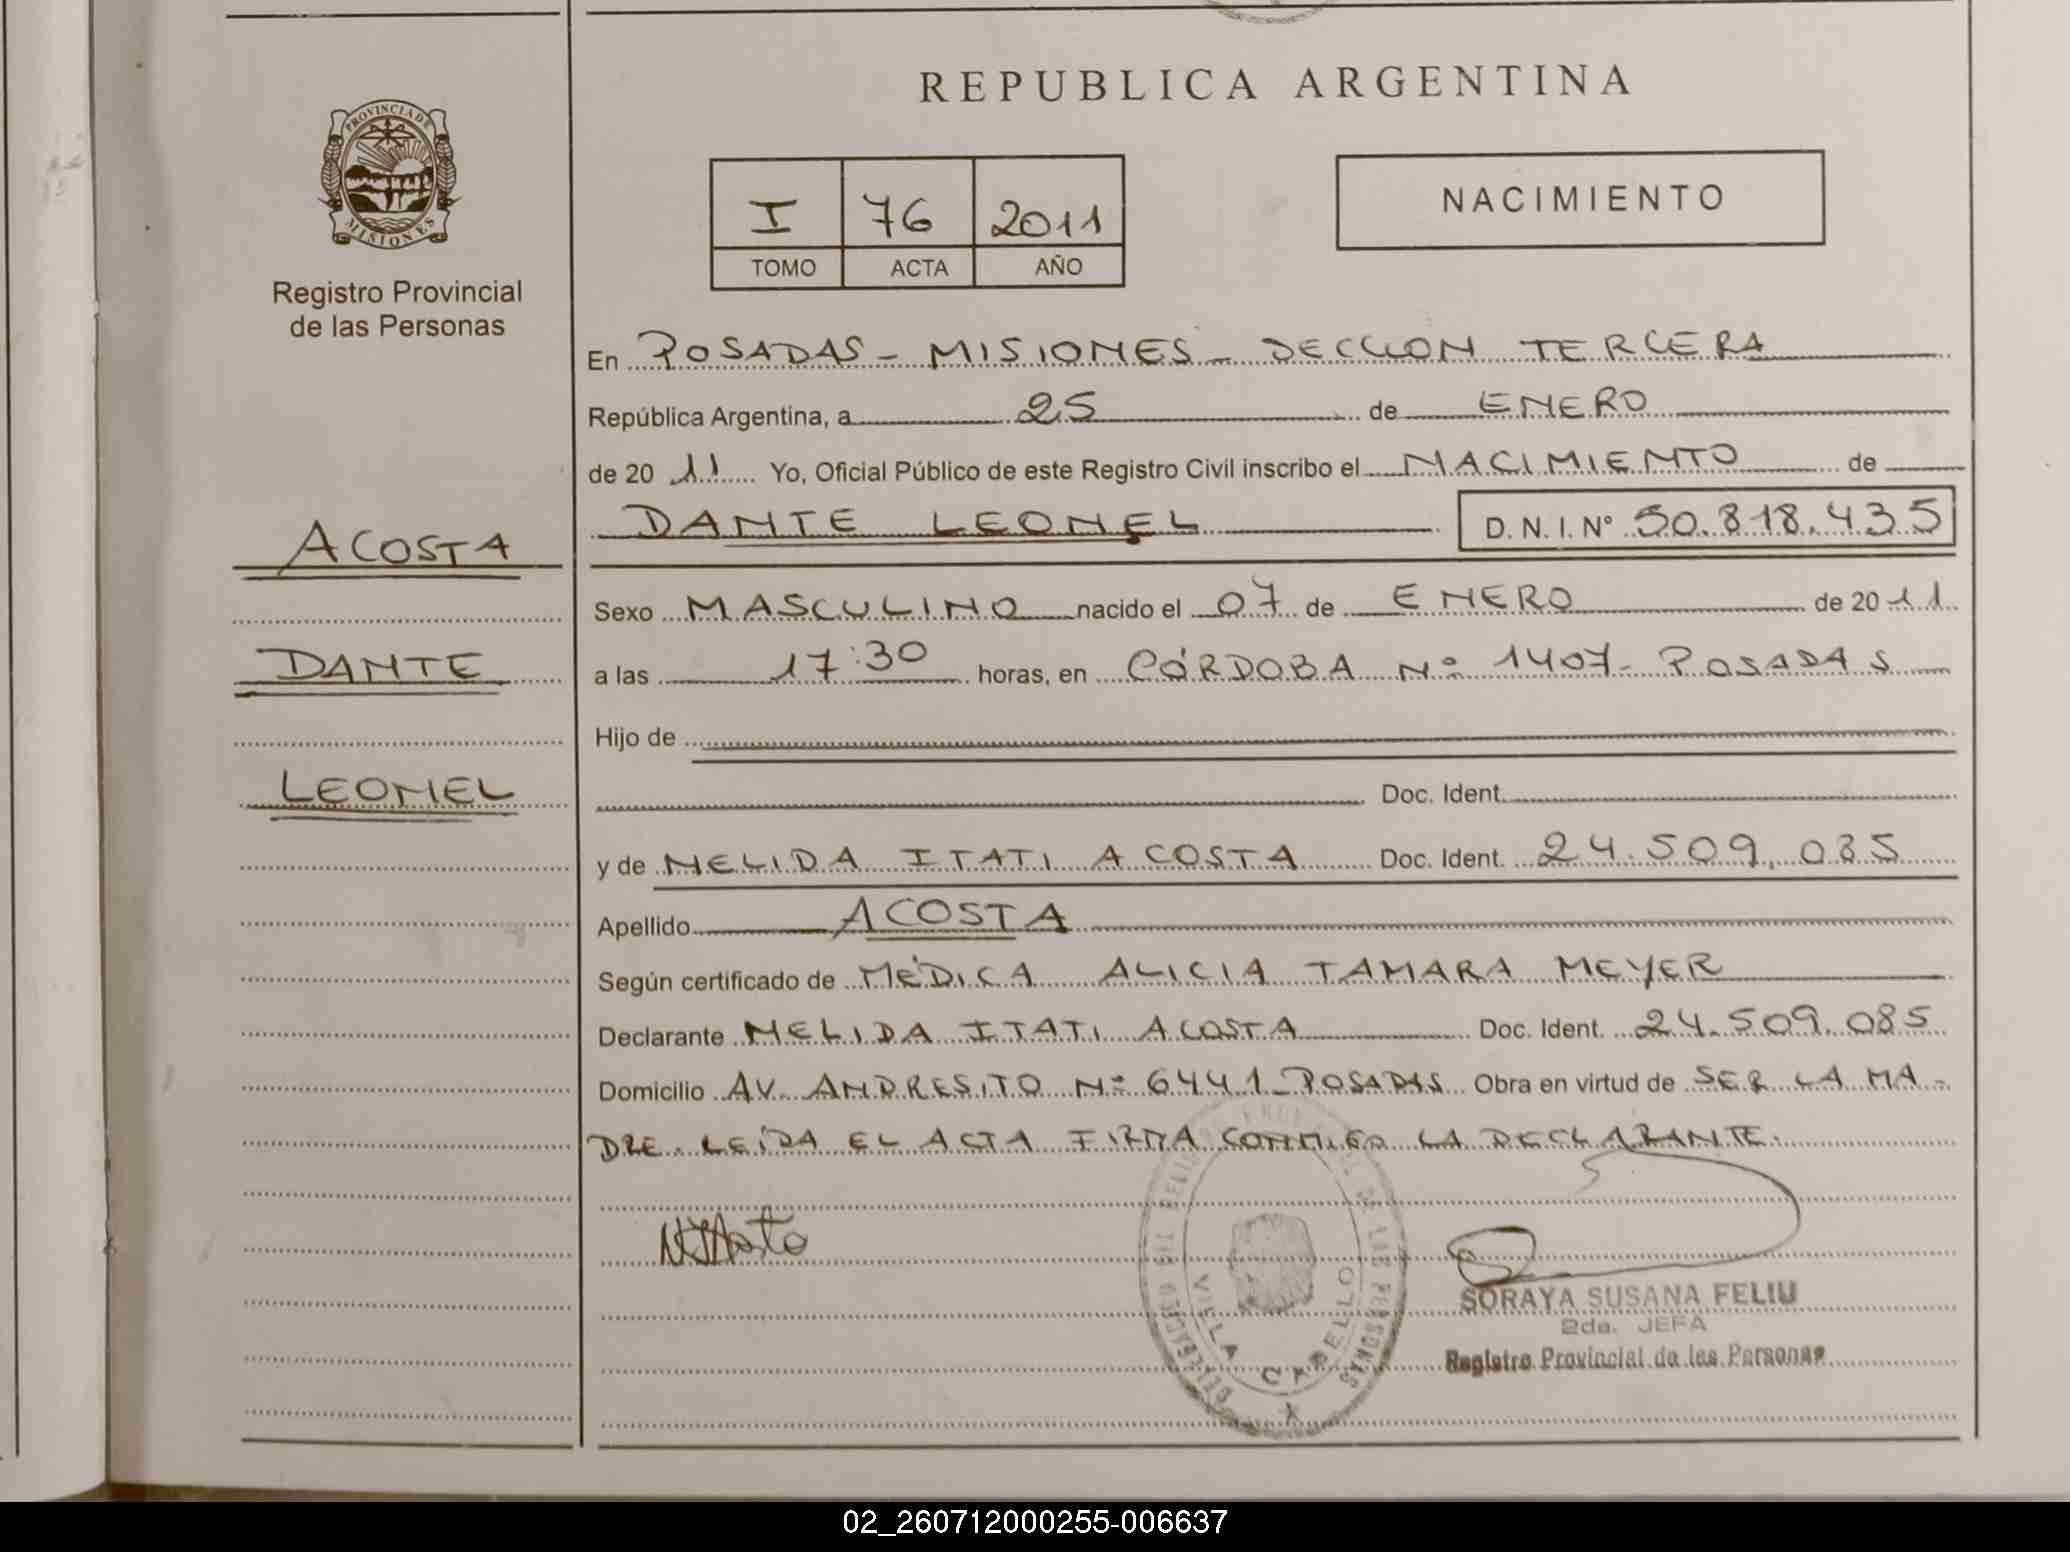 REPUBLICA ARGENTINA
PROVINCIA DE
MISIONES
Registro Provincial
de las Personas
I 76 2011
TOMO ACTA AÑO
NACIMIENTO
En POSADAS - MISIONES - SECCION TERCERA
República Argentina, a 25 de ENERO
de 20 11 Yo, Oficial Público de este Registro Civil inscribo el NACIMIENTO de
DANTE LEONEL D.N.I.Nº 50.818.435
ACOSTA
DANTE
LEONEL
Sexo MASCULINO nacido el 07 de ENERO de 20 11
a las 17:30 horas, en CÓRDOBA Nº 1407- POSADAS
Hijo de
Doc. Ident.
y de NELIDA ITATI ACOSTA Doc. Ident. 24.509.085
Apellido ACOSTA
Según certificado de MÉDICA ALICIA TAMARA MEYER
Declarante NELIDA ITATI ACOSTA Doc. Ident. 24.509.085
Domicilio AV. ANDRESITO Nº 6441-POSADAS Obra en virtud de SER LA MA-
DRE. LEÍDA EL ACTA FIRMA CONMIGO LA DECLARANTE.
VILLA CABELLO
DE LAS PERSONAS
SORAYA SUSANA FELIU
2da. JEFA
Registro Provincial de las Personas
02_260712000255-006637